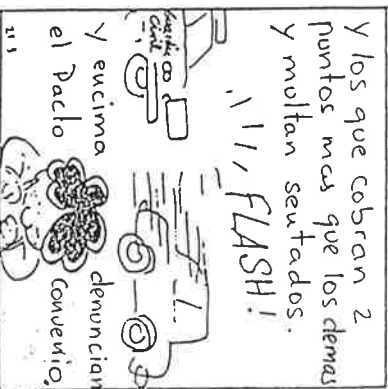 y los que cobran 2
puntos mas que los demas
y multan sentados.
FLASH!
Guardia
Civil
y encima denuncian
el Pacto Convenio.